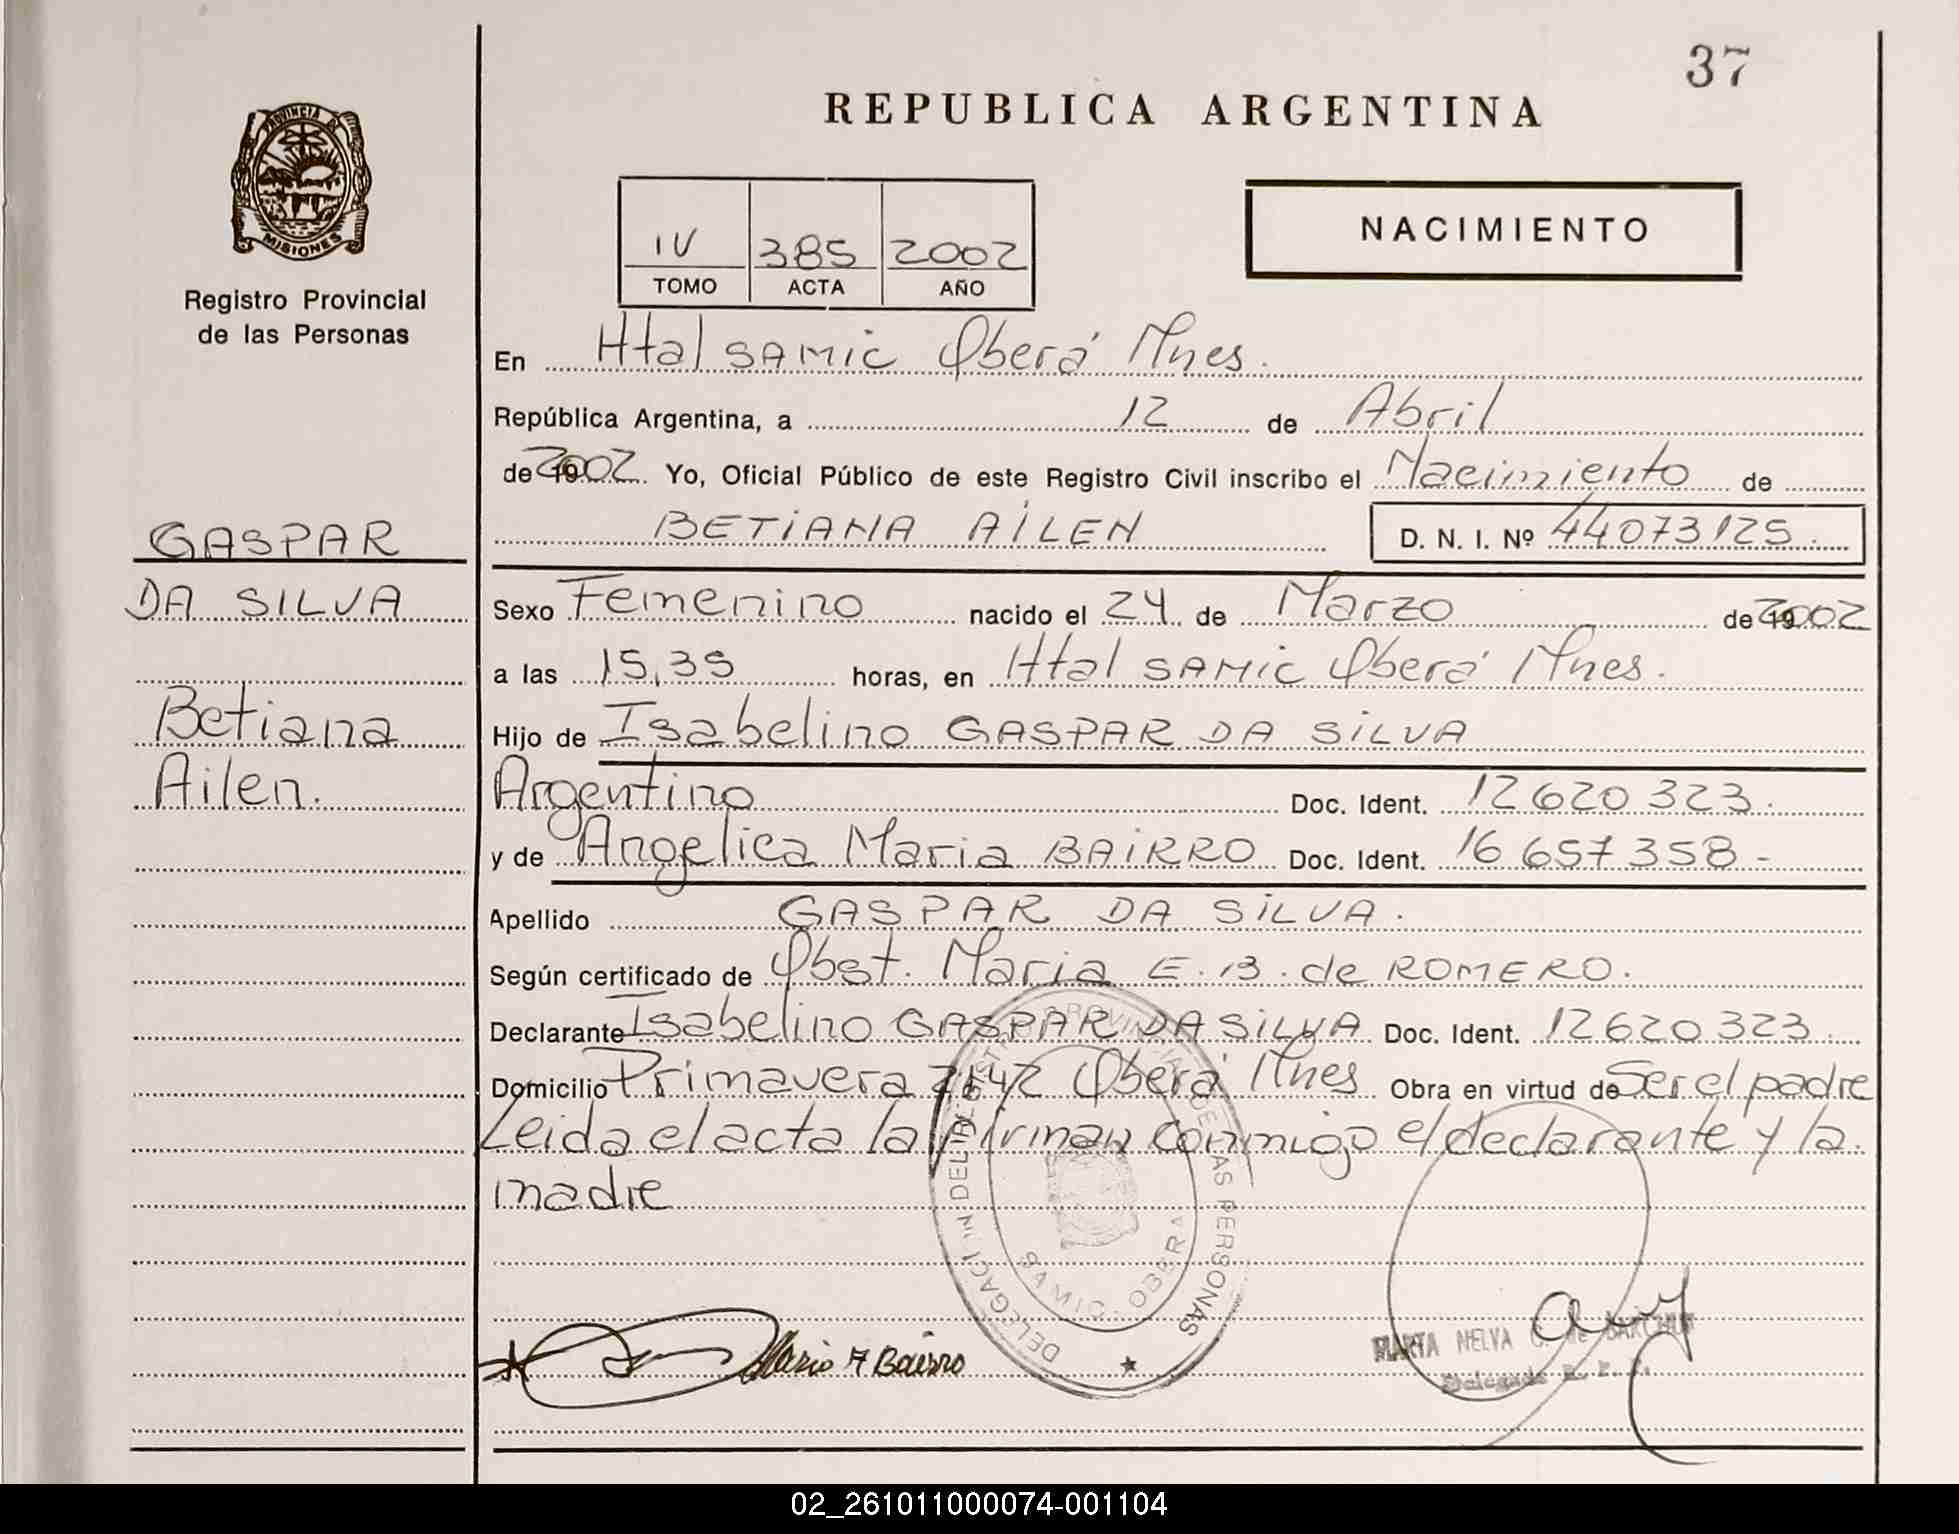 37
REPUBLICA ARGENTINA
PROVINCIA DE
MISIONES
Registro Provincial
de las Personas
IV 385 2002
TOMO ACTA AÑO
NACIMIENTO
En Htal SAMIC Oberá Mnes.
República Argentina, a 12 de Abril
de 2002. Yo, Oficial Público de este Registro Civil inscribo el Nacimiento de
BETIANA AILEN D. N. I. Nº 44073125
GASPAR
DA SILVA
Betiana
Ailen.
Sexo Femenino nacido el 24 de Marzo de 2002
a las 15,35 horas, en Htal SAMIC Oberá Mnes.
Hijo de Isabelino GASPAR DA SILVA
Argentino Doc. Ident. 12620323.
y de Angelica Maria BAIRRO Doc. Ident. 16657358-
Apellido GASPAR DA SILVA.
Según certificado de Obst. Maria E.B. de ROMERO.
Declarante Isabelino GASPAR DA SILVA Doc. Ident. 12620323.
Domicilio Primavera 2142 Oberá Mnes Obra en virtud de Ser el padre
Leida el acta la firman conmigo el declarante y la
madre
PROVINCIAL DE LAS PERSONAS
SAMIC - OBERA
Maria A Bairro
MARTA NELVA G. de
Delegada R. P. P.
02_261011000074-001104